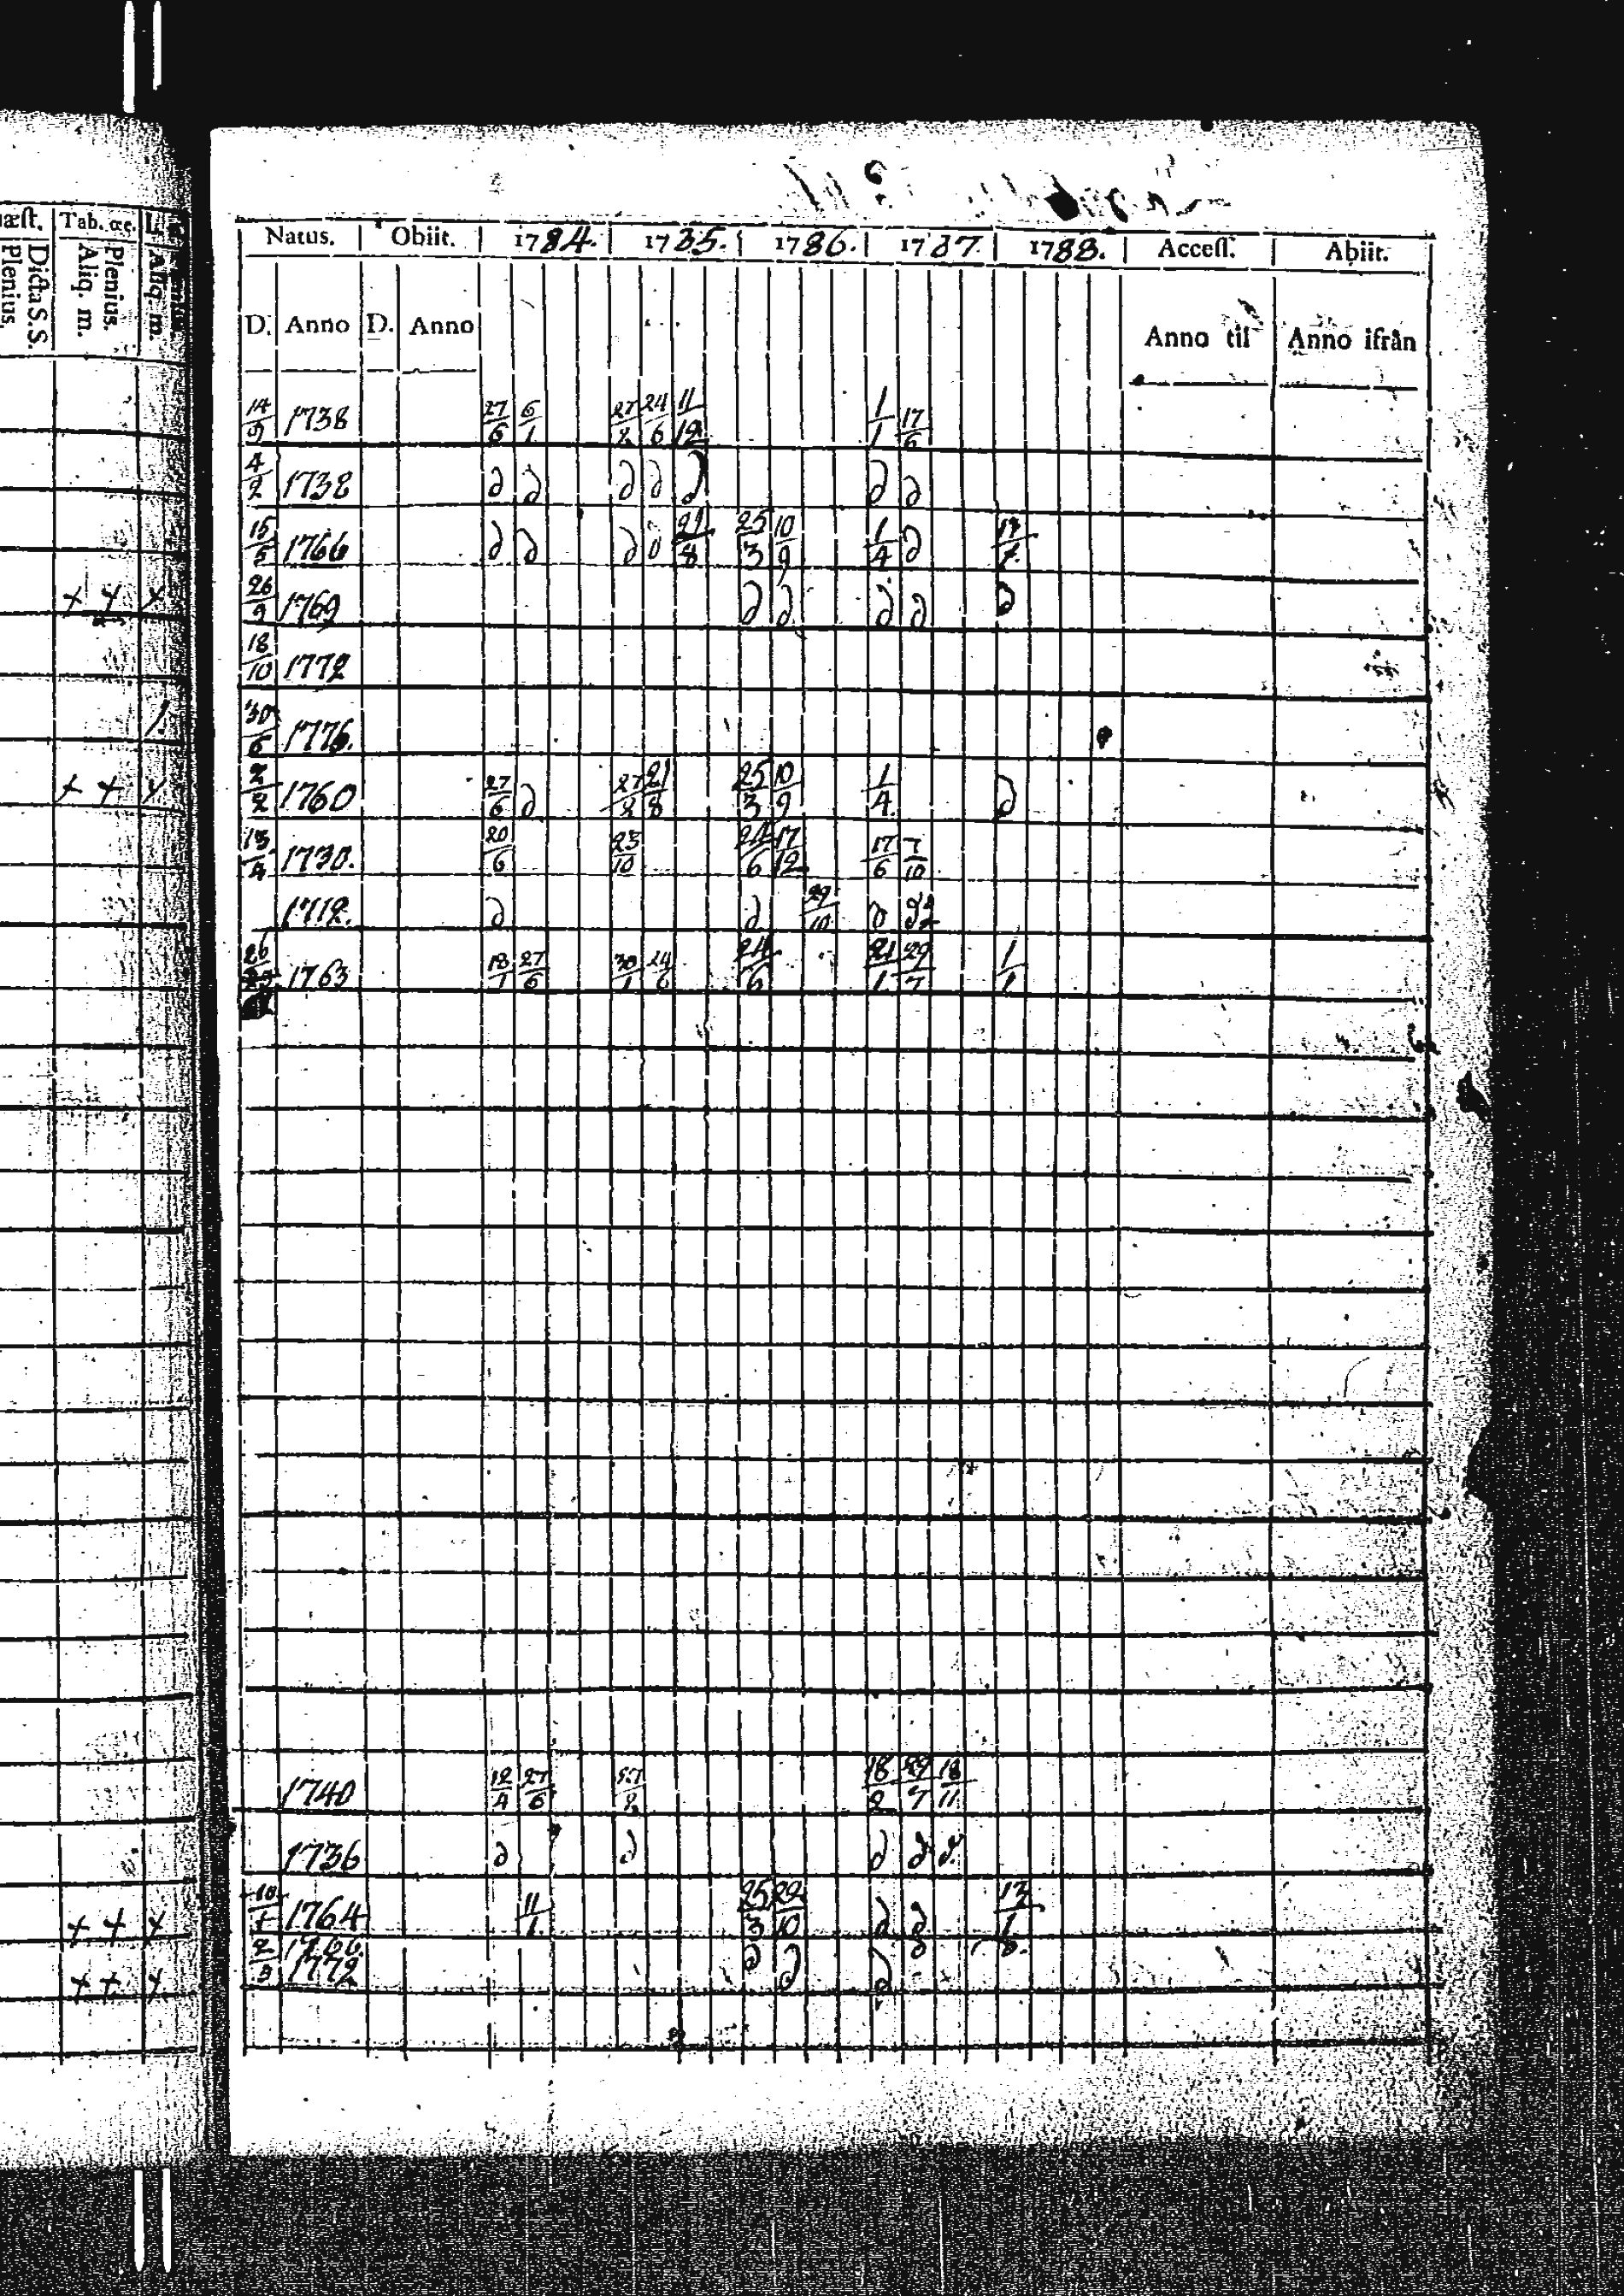 Tab. œc.
Dicta S.S. Plenius.
Plenius. Aliq. m.
Aliq. m.
Natus. Obiit. 1784. 1785. 1786. 1787. 1788. Access. Abiit.
D. Anno D. Anno Anno til Anno ifrån
14/9 1738 27/6 6/1 27/2 24/6 11/12 1/1 17/6
4/2 1738 D D D D D D D
15/5 1766 D D D D 21/8 25/3 10/9 1/4 D
26/9 1769 D D D D D
18/10 1772
30/6 1776.
2/2 1760 27/6 D 27/2 21/8 25/3 10/9 1/4 D
13/4 1730. 20/6 23/10 24/6 17/12 17/6 7/10
1712. D D 29/10 D
1763 18/1 27/6 30/1 24/6 24/6 21/1 29/7 1/1
1740 12/4 27/6 27/2 18/2 29/7 18/11
1736 D D D D D
10/1 1764 11/1 25/3 22/10 D D
2/3 1772 D D D
x x x
x x x
x x x
x x x